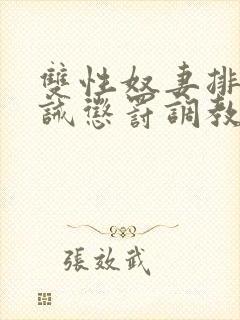 雙性奴妻排
誡懲罰調教
張效武